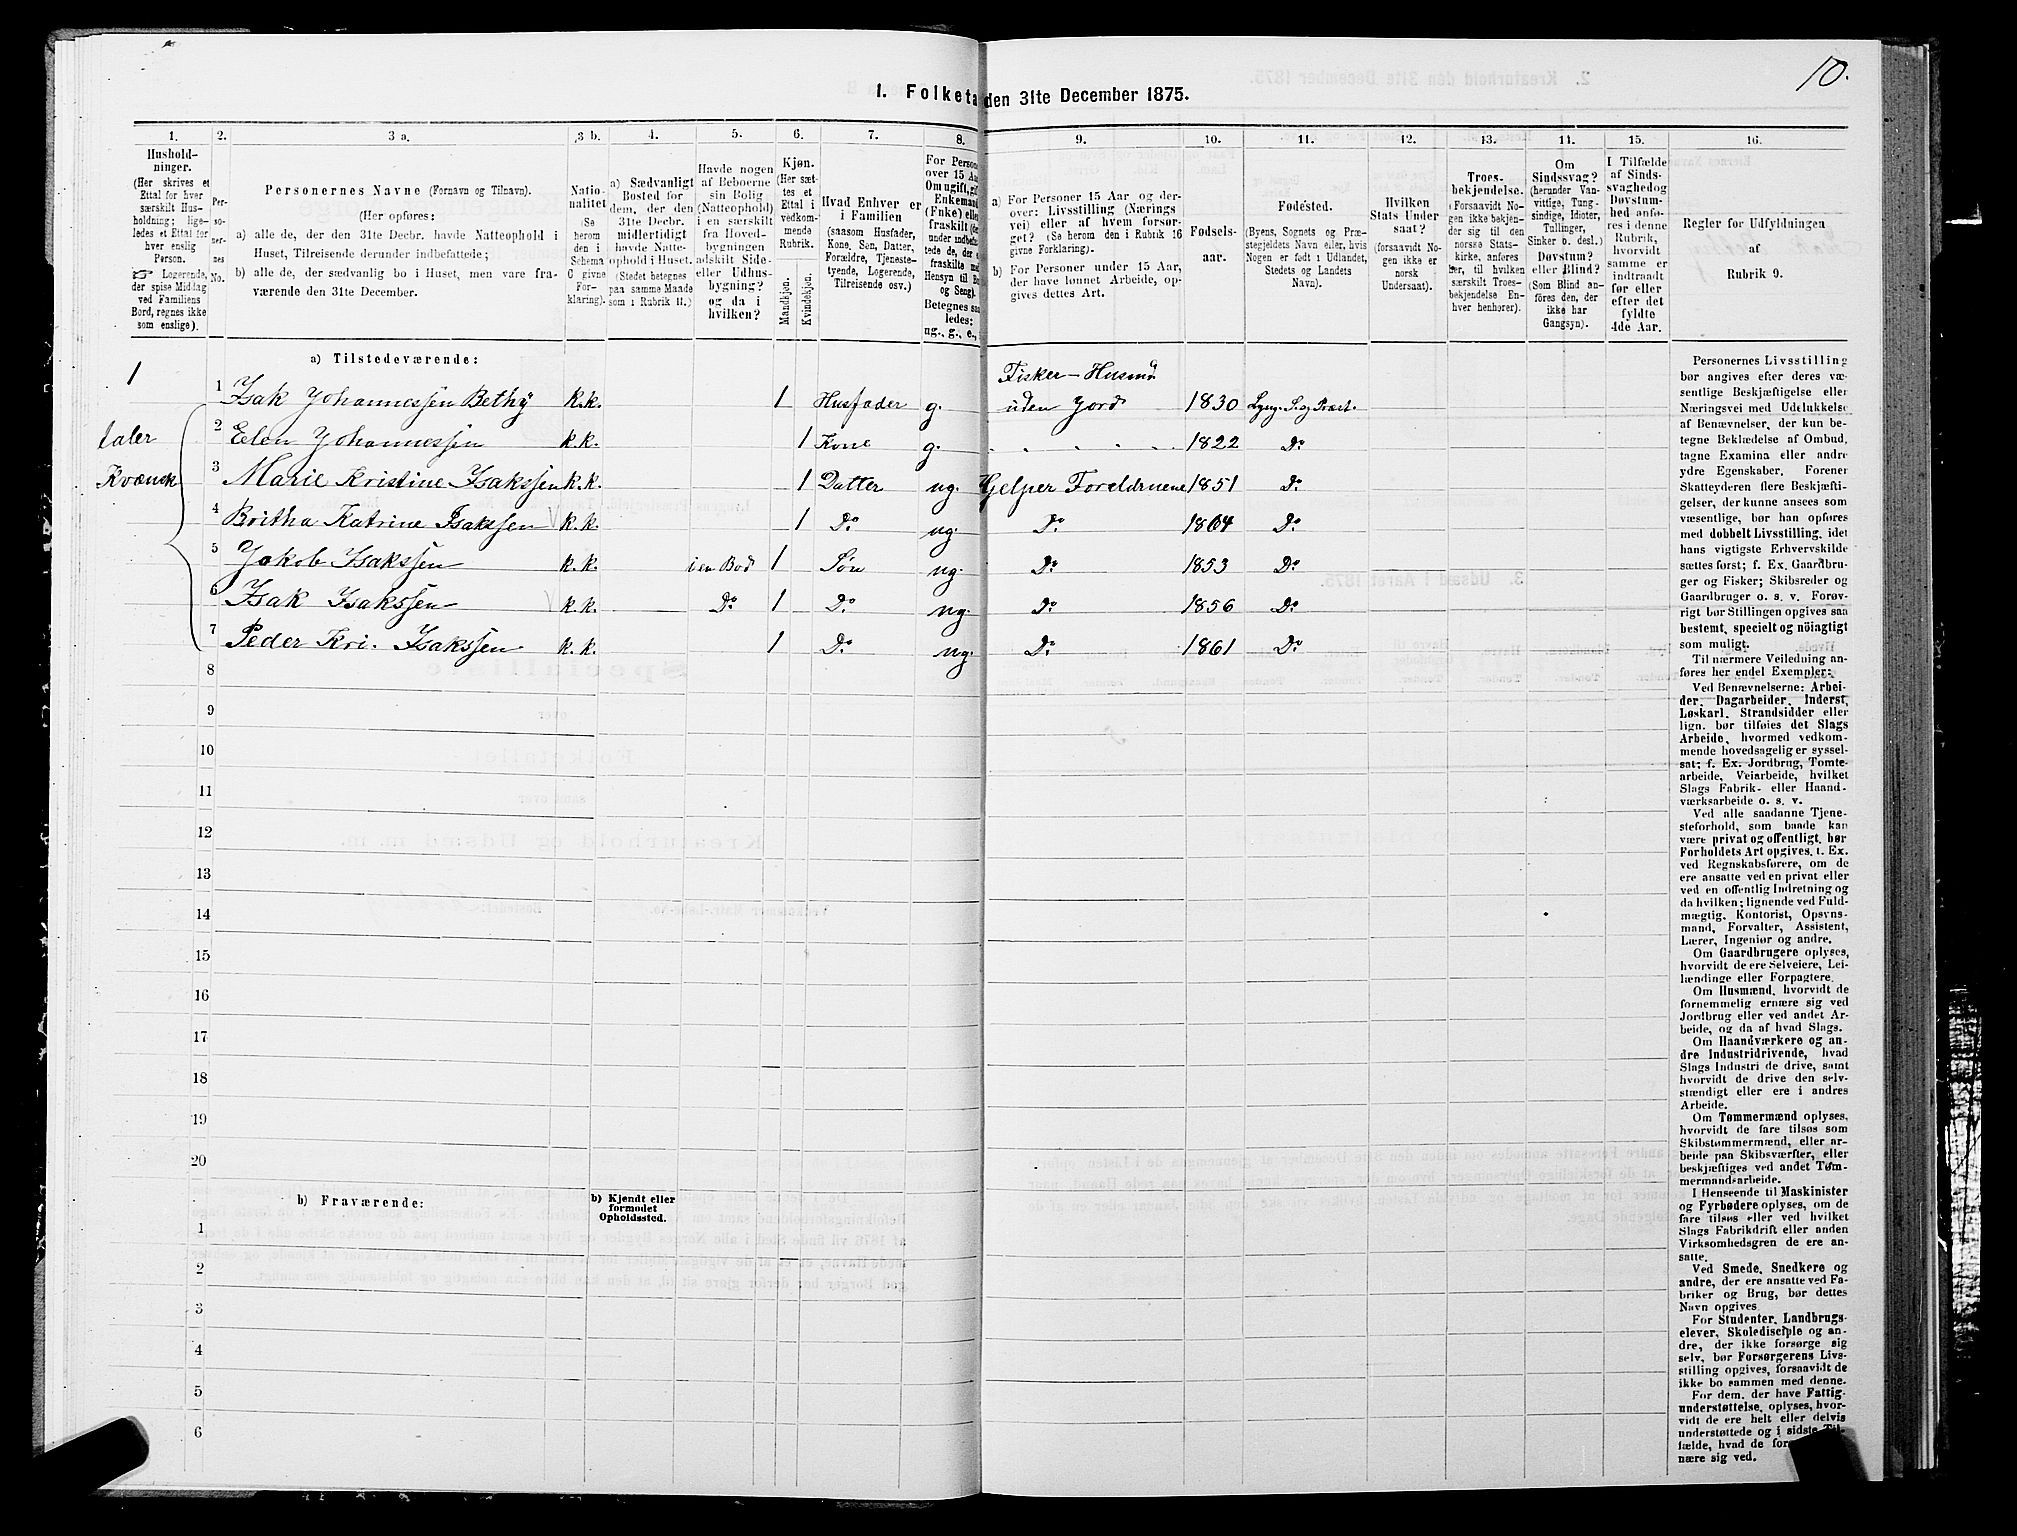 10.
1. Folketa den 31te December 1875.
1. 2. 3 a. 3 b. 4. 5. 6. 7. 8. 9. 10. 11. 12. 13. 11. 15. 16.
Hushold-
ninger.
(Her skrives et
Ettal for hver
særskilt Hus-
holdning; lige-
ledes et Ettal for
hver enslig
Person.
☞ Logerende,
der spise Middag
ved Familiens
Bord, regnes ikke
som enslige).
Per-
so-
ner-
nes
No.
Personernes Navne (Fornavn og Tilnavn).
(Her opføres:
a) alle de, der den 31te Decbr. havde Natteophold i
Huset, Tilreisende derunder indbefattede;
b) alle de, der sædvanlig bo i Huset, men vare fra-
værende den 31te December.
Natio-
nalitet
(Se
herom
den i
Schema
C givne
For-
klaring).
a) Sædvanligt
Bosted for
dem, der den
31te Decbr.
midlertidigt
havde Natte-
ophold i Huset.
(Stedet betegnes
paa samme Maade
som i Rubrik 11.)
Havde nogen
af Beboerne
sin Bolig
(Natteophold)
i en særskilt
fra Hoved-
bygningen
adskilt Side-
eller Udhus-
bygning?
og da i
hvilken?
Kjøn.
(Her sæt-
tes et
Ettal i
vedkom-
mende
Rubrik.
Mandkjøn.
Kvindekjøn.
Hvad Enhver er
i Familien
(saasom Husfader,
Kone, Søn, Datter,
Forældre, Tjeneste-
tyende, Logerende,
Tilreisende osv.)
For Persone
over 15 Aar
Om ugift, gif
Enkemand
(Enke) eller
fraskilt (der
under indbefat-
tede de, der er
fraskilte med
Hensyn til Bo
og Seng).
Betegnes saa-
ledes:
ug., g., e.,
a) For Personer 15 Aar og der-
over: Livsstilling (Nærings
vei) eller af hvem forsør-
get? (Se herom den i Rubrik 16
givne Forklaring).
b) For Personer under 15 Aar,
der have lønnet Arbeide, op-
gives dettes Art.
Fødsels-
aar.
Fødested.
(Byens, Sognets og Præ-
stegjeldets Navn eller, hvis
Nogen er født i Udlandet,
Stedets og Landets
Navn).
Hvilken
Stats Under
saat?
(forsaavidt No-
gen ikke er
norsk
Undersaat).
Troes-
bekjendelse.
(Forsaavidt No-
gen ikke bekjen-
der sig til den
norske Stats-
kirke, anføres
her, til hvilken
særskilt Troes-
bekjendelse En-
hver henhører).
Om
Sindssvag?
(herunder Van-
vittige, Tung-
sindige, Idioter,
Tullinger,
Sinker o. desl.)
Døvstum?
eller Blind?
(Som Blind an-
føres den, der
ikke har
Gangsyn).
I Tilfælde
af Sinds-
svaghed og
Døvstum-
hed anfø-
res i denne
Rubrik,
hvorvidt
samme er
indtraadt
før eller
efter det
fyldte
4de Aar.
Regler for Udfyldningen
af
Rubrik 9.
a) Tilstedeværende:
1 1 Isak Johannessen Bethy k.k. 1 Husfader g. Fisker - Husmd uden Jord 1830 Lyng. S. og Præst.
taler
Kvænsk
2 Eelen Johannessen k.k. 1 Kone g. " " " " 1822 Do
3 Marie Kristine Isakssen k.k. 1 Datter ug. Hjelper Foreldrene 1851 Do
4 Britha Katrine Isakssen k.k. 1 Do ug. Do 1864 Do
5 Jakob Isakssen k.k. i en Bod 1 Søn ug. Do 1853 Do
6 Isak Isakssen k.k. Do 1 Do ug. Do 1856 Do
7 Peder Kri. Isakssen k.k. 1 Do ug. Do 1861 Do
8
9
10
11
12
13
14
15
16
17
18
19
20
b) Fraværende:
b) Kjendt eller
formodet
Opholdssted.
1
2
3
4
5
6
Personernes Livsstilling
bør angives efter deres væ-
sentlige Beskjæftigelse eller
Næringsvei med Udelukkelse
af Benævnelser, der kun be-
tegne Beklædelse af Ombud,
tagne Examina eller andre
ydre Egenskaber. Forener
Skatteyderen flere Beskjæfti-
gelser, der kunne ansees som
væsentlige, bør han opføres
med dobbelt Livsstilling, idet
hans vigtigste Erhvervskilde
sættes først; f. Ex. Gaardbru-
ger og Fisker; Skibsreder og
Gaardbruger o. s. v. Forøv-
rigt bør Stillingen opgives saa
bestemt, specielt og nøiagtigt
som muligt.
Til nærmere Veiledning an-
føres her endel Exempler:
Ved Benævnelserne: Arbei-
der, Dagarbeider, Inderst,
Løskarl, Strandsidder eller
lign. bør tilføies det Slags
Arbeide, hvormed vedkom-
mende hovedsagelig er syssel-
sat; f. Ex. Jordbrug, Tomte-
arbeide, Veiarbeide, hvilket
Slags Fabrik- eller Haand-
værksarbeide o. s. v.
Ved alle saadanne Tjene-
steforhold, som baade kan
være privat og offentligt, bør
Forholdets Art opgives, t. Ex.
ved Regnskabsførere, om de
ere ansatte ved en privat eller
ved en offentlig Indretning og
da hvilken; lignende ved Fuld-
mægtig, Kontorist, Opsyns-
mand, Forvalter, Assistent,
Lærer, Ingeniør og andre.
Om Gaardbrugere oplyses,
hvorvidt de ere Selveiere, Lei-
lændinge eller Forpagtere.
Om Husmænd, hvorvidt de
fornemmelig ernære sig ved
Jordbrug eller ved andet Ar-
beide, og da af hvad Slags.
Om Haandværkere og an-
dre Industridrivende, hvad
Slags Industri de drive, samt
hvorvidt de drive den selv-
stændigt eller ere i andres
Arbeide.
Om Tømmermænd oplyses,
hvorvidt de fare tilsøs som
Skibstømmermænd, eller ar-
beide paa Skibsværfter, eller
beskjæftiges ved andet Tøm-
mermandsarbeide.
I Henseende til Maskinister
og Fyrbødere oplyses, om de
fare tilsøs eller ved hvilket
Slags Fabrikdrift eller anden
Virksomhedsgren de ere an-
satte.
Ved Smede, Snedkere og
andre, der ere ansatte ved Fa-
briker og Brug, bør dettes
Navn opgives
For Studenter, Landbrugs-
elever, Skoledisciple og an-
dre, der ikke forsørge sig
selv, bør Forsørgerens Livs-
stilling opgives, forsaavidt de
ikke bo sammen med denne.
For dem, der have Fattig-
understøttelse, oplyses, hvor-
vidt de ere helt eller delvis
understøttede og i sidste Til-
fælde, hvad de for
nære sig ved.